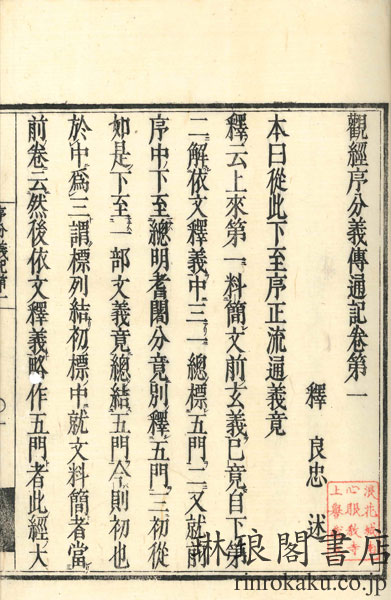 觀經序分義傳通記卷第一
釋良忠述
本曰從此下至序正流通義竟
釋云上來第一料簡文前玄義已竟自下第
二解依文釋義中三一總標五門二又就前
序中下至總明耆闍分竟別釋五門三初從
如是下至一部文義竟總結五門今則初也
於中爲三謂標列結初標中就文料簡者當
前卷云然後依文釋義略作五門者此經大
琳琅閣書店
rinrokaku.co.jp